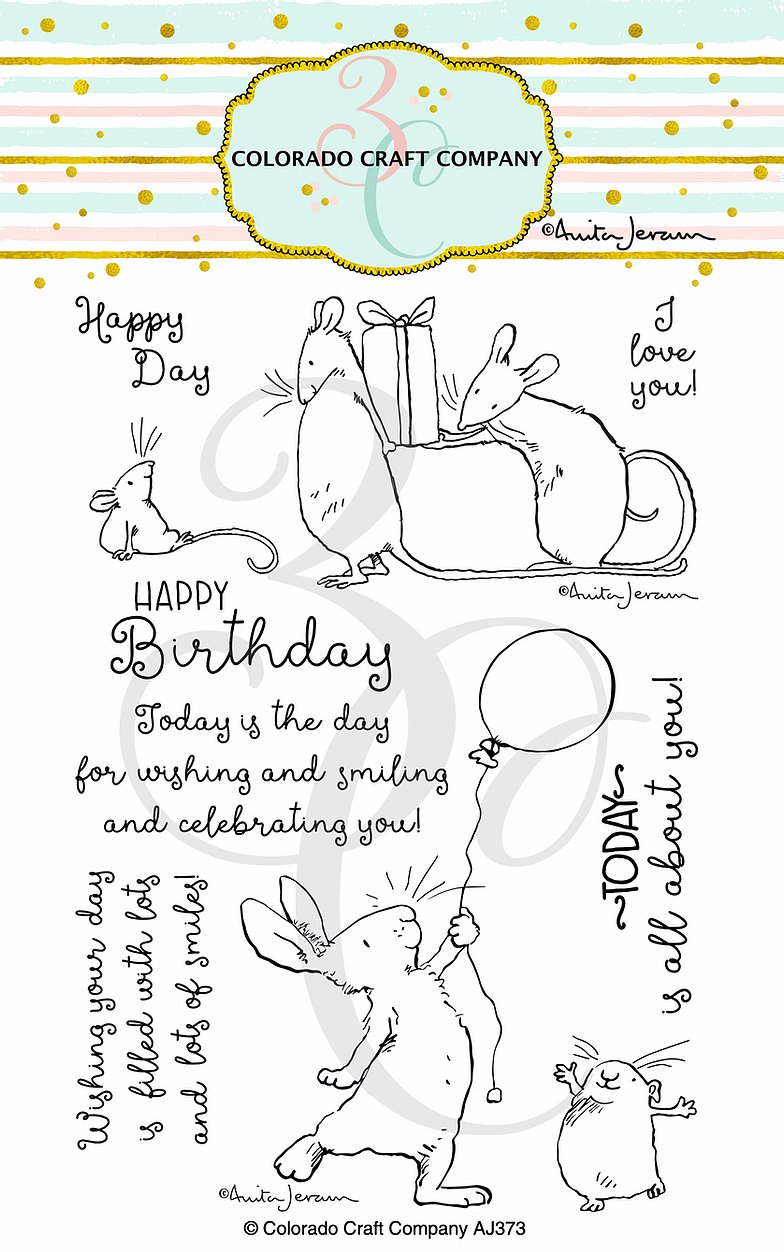 3C
COLORADO CRAFT COMPANY
©Anita Jeram
Happy
Day
I
love
you!
©Anita Jeram
HAPPY
Birthday
Today is the day
for wishing and smiling
and celebrating you!
~TODAY~
is all about you!
Wishing your day
is filled with lots
and lots of smiles!
©Anita Jeram
© Colorado Craft Company AJ373